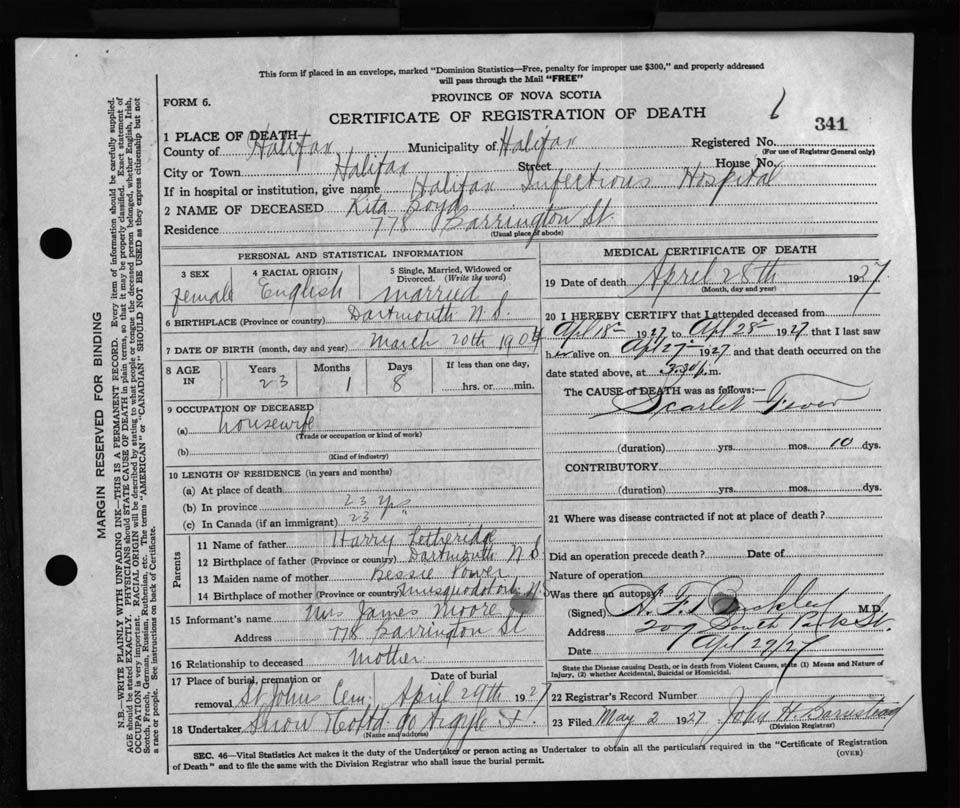 This form if placed in an envelope, marked "Dominion Statistics—Free, penalty for improper use $300," and properly addressed
will pass through the Mail "FREE"
FORM 6.
PROVINCE OF NOVA SCOTIA
CERTIFICATE OF REGISTRATION OF DEATH
6
341
1 PLACE OF DEATH
County of Halifax Municipality of Halifax Registered No.
(For use of Registrar General only)
City or Town Halifax Street House No.
If in hospital or institution, give name Halifax Infectious Hospital
2 NAME OF DECEASED Rita Boyds
Residence 778 Barrington St.
(Usual place of abode)
PERSONAL AND STATISTICAL INFORMATION
3 SEX 4 RACIAL ORIGIN 5 Single, Married, Widowed or Divorced. (Write the word)
female English married
6 BIRTHPLACE (Province or country) Dartmouth N.S.
7 DATE OF BIRTH (month, day and year) March 20th 1904
8 AGE IN Years Months Days If less than one day,
23 1 8 hrs. or min.
9 OCCUPATION OF DECEASED
(a) housewife
(Trade or occupation or kind of work)
(b)
(Kind of industry)
10 LENGTH OF RESIDENCE (in years and months)
(a) At place of death
(b) In province 23 yrs
(c) In Canada (if an immigrant) 23
Parents
11 Name of father Harry
12 Birthplace of father (Province or country) Dartmouth N.S
13 Maiden name of mother Bessie Power
14 Birthplace of mother (Province or country) N.S
15 Informant's name Mrs James Moore
Address 778 Barrington St
16 Relationship to deceased Mother
17 Place of burial, cremation or Date of burial
removal St Johns Cem. April 29th 1927
18 Undertaker Snow & Co Ltd 90 Argyle St.
(Name and address)
MEDICAL CERTIFICATE OF DEATH
19 Date of death April 28th 1927
(Month, day and year)
20 I HEREBY CERTIFY that I attended deceased from
Apl 18 1927 to Apl 28 1927, that I last saw
her alive on Apl 27 1927 and that death occurred on the
date stated above, at 3.30 p.m.
The CAUSE of DEATH was as follows:—
Scarlet Fever
(duration) yrs. mos. 10 dys.
CONTRIBUTORY
(duration) yrs. mos. dys.
21 Where was disease contracted if not at place of death?
Did an operation precede death? Date of
Nature of operation
Was there an autopsy?
(Signed) A. F. M.D.
Address 209 South Park St.
Date Apl 29/27
State the Disease causing Death, or in death from Violent Causes, state (1) Means and Nature of
Injury, (2) whether Accidental, Suicidal or Homicidal.
22 Registrar's Record Number
23 Filed May 2 1927 John H. Barnstead
(Division Registrar)
SEC. 46—Vital Statistics Act makes it the duty of the Undertaker or person acting as Undertaker to obtain all the particulars required in the "Certificate of Registration
of Death" and to file the same with the Division Registrar who shall issue the burial permit.
(OVER)
MARGIN RESERVED FOR BINDING
N.B.—WRITE PLAINLY WITH UNFADING INK—THIS IS A PERMANENT RECORD. Every item of information should be carefully supplied.
AGE should be stated EXACTLY. PHYSICIANS should STATE CAUSE OF DEATH in plain terms, so that it may be properly classified. Exact statement of
OCCUPATION is very important. RACIAL ORIGIN will be described by stating to what people or tongue the deceased person belonged, whether English, Irish,
Scotch, French, German, Russian, Ruthenian, etc. The terms "AMERICAN" or "CANADIAN" SHOULD NOT BE USED as they express citizenship but not
a race or people. See instructions on back of Certificate.